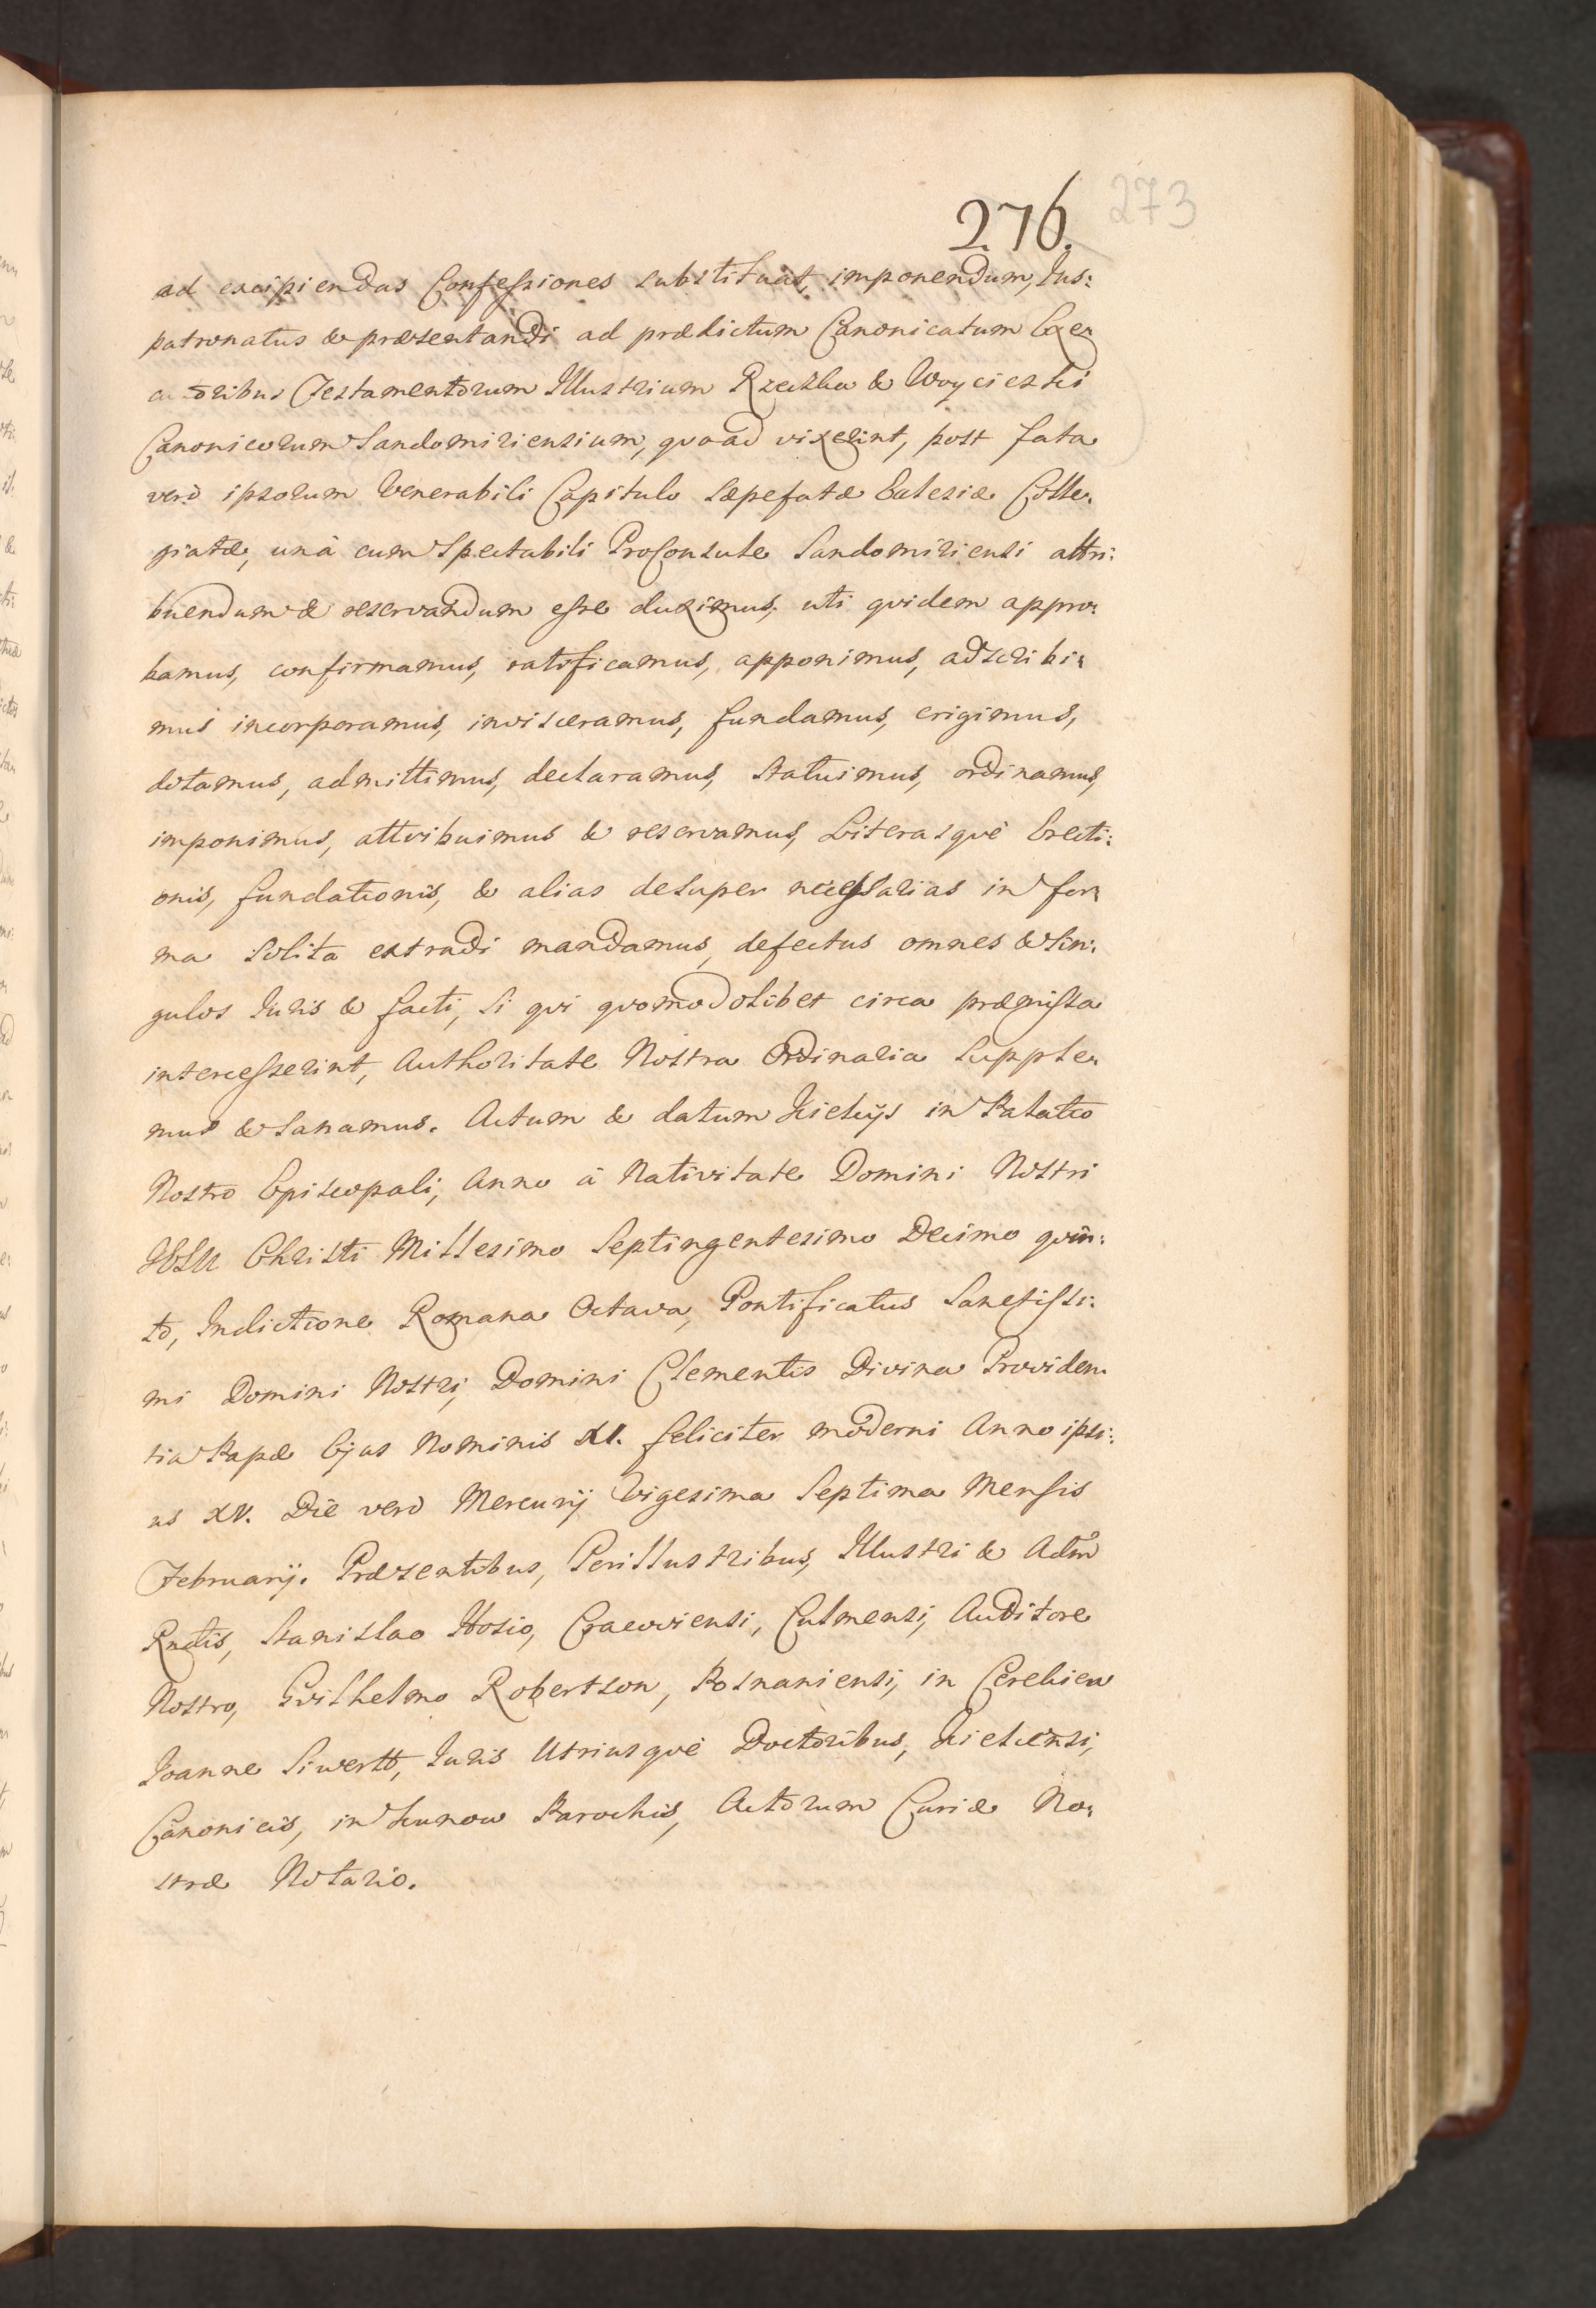 276. 273
ad excipiendas Confessiones substituat, imponendum, Jus:
patronatus & præsentandi ad prædictum Canonicatum Exe:
cutoribus Testamentorum Illustrium Rzeczka & Woycieski
Canonicorum Sandomiriensium, quoad vixerint, post fata
verò ipsorum Venerabili Capitulo sæpefatæ Eclesiæ Colle:
giatæ, unà cum Spectabili ProConsule Sandomiriensi attri:
buendum & reservandum esse duximus, uti quidem appro:
bamus, confirmamus, ratificamus, apponimus, adscribi:
mus incorporamus, invisceramus, fundamus, erigimus,
dotamus, admittimus, declaramus, statuimus, ordinamus,
imponimus, attribuimus & reservamus, Literasquè Erecti:
onis, fundationis, & alias desuper necessarias in for:
ma solita extradi mandamus, defectus omnes & sin:
gulos Juris & facti, si qui quomodolibet circa præmissa
intercesserint, Authoritate Nostra Ordinaria supple:
mus & sanamus. Actum & datum Kielcijs in Palatio
Nostro Episcopali, Anno à Nativitate Domini Nostri
JESU Christi Millesimo Septingentesimo Decimo quin:
to, Indictione Romana Octava, Pontificatus Sanctissi:
mi Domini Nostri, Domini Clementis Divina Providen:
tia Papæ Ejus Nominis XI. feliciter moderni Anno ipsi:
us XV. Die vero Mercurij Vigesima Septima Mensis
Februarij. Præsentibus, Perillustribus, Illustri & Adm̃
Rndis, Stanislao Hosio, Cracoviensi, Culmensi, Auditore
Nostro, Gvilhelmo Robertson, Posnaniensi, in Cerekiew
Joanne Siwertt, Juris Utriusquè Doctoribus, Kielcensi,
Canonicis, in Kunow Parochis, Actorum Curiæ No:
stræ Notario.